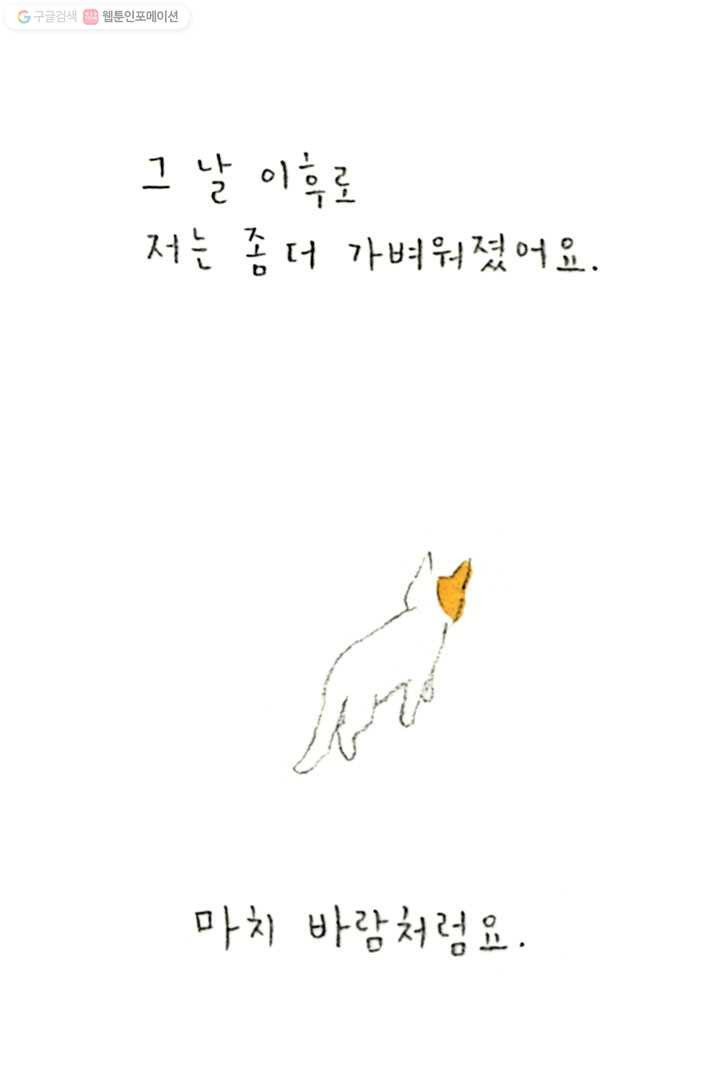 구글검색 웹툰인포메이션
그 날 이후로
저는 좀 더 가벼워졌어요.
마치 바람처럼요.